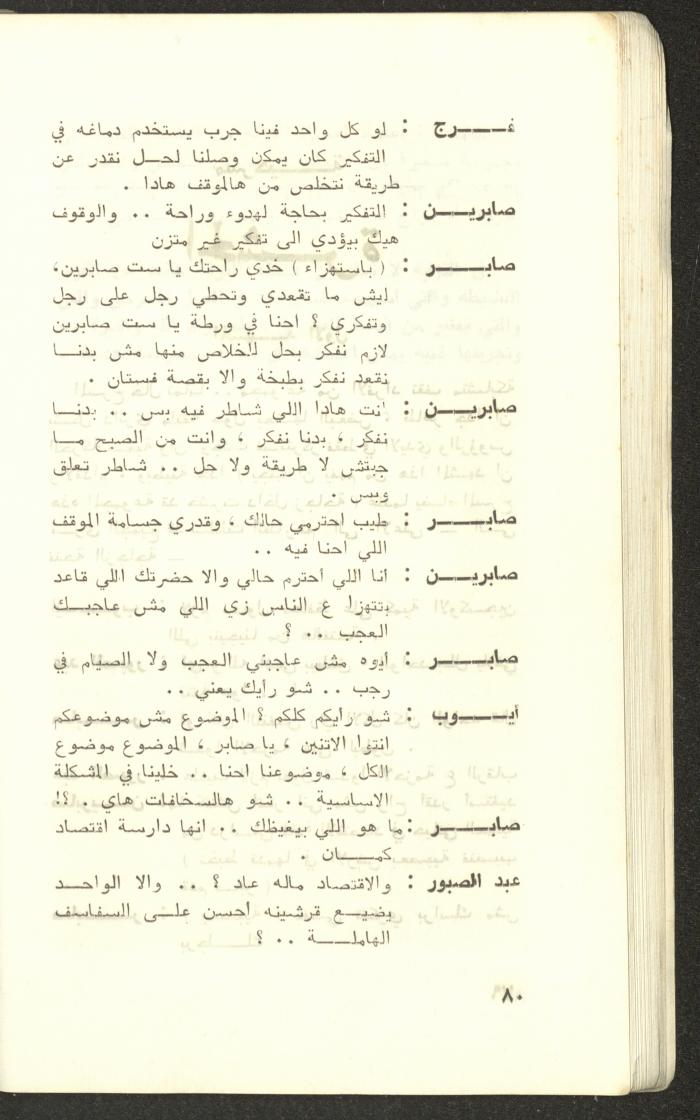 فـــــرج : لو كل واحد فينا جرب يستخدم دماغه في
التفكير كان يمكن وصلنا لحــل نقدر عن
طريقة نتخلص من هالموقف هادا .
صابريـــن : التفكير بحاجة لهدوء وراحة .. والوقوف
هيك بيؤدي الى تفكير غير متزن
صابـــــر : ( باستهزاء ) خدي راحتك يا ست صابرين،
ليش ما تقعدي وتحطي رجل على رجل
وتفكري ؟ احنا في ورطة يا ست صابرين
لازم نفكر بحل للخلاص منها مش بدنــا
نقعد نفكر بطبخة والا بقصة فستان .
صابريـــن : انت هادا اللي شاطر فيه بس .. بدنــا
نفكر ، بدنا نفكر ، وانت من الصبح مــا
جبتش لا طريقة ولا حل .. شــاطر تعلق
وبس .
صابـــــر : طيب احترمي حالك ، وقدري جسامة الموقف
اللي احنا فيه ..
صابريـــن : أنا اللي أحترم حالي والا حضرتك اللي قاعد
بتتهزأ ع الناس زي اللي مش عاجبــك
العجب .. ؟
صابـــــر : أيوه مش عاجبني العجب ولا الصيام في
رجب .. شو رأيك يعني ..
أيـــــوب : شو رأيكم كلكم ؟ الموضوع مش موضوعكم
انتوا الاتنين ، يا صابر ، الموضوع موضوع
الكل ، موضوعنا احنا .. خلينا في المشكلة
الاساسية .. شو هالسخافات هاي . ؟!
صابـــــر : ما هو اللي بيغيظك .. انها دارسة اقتصاد
كمــــان .
عبد الصبور : والاقتصاد ماله عاد ؟ .. والا الواحــد
يضيــع قرشينه أحسن علــى السفاسف
الهاملـــة .. ؟
٨٠